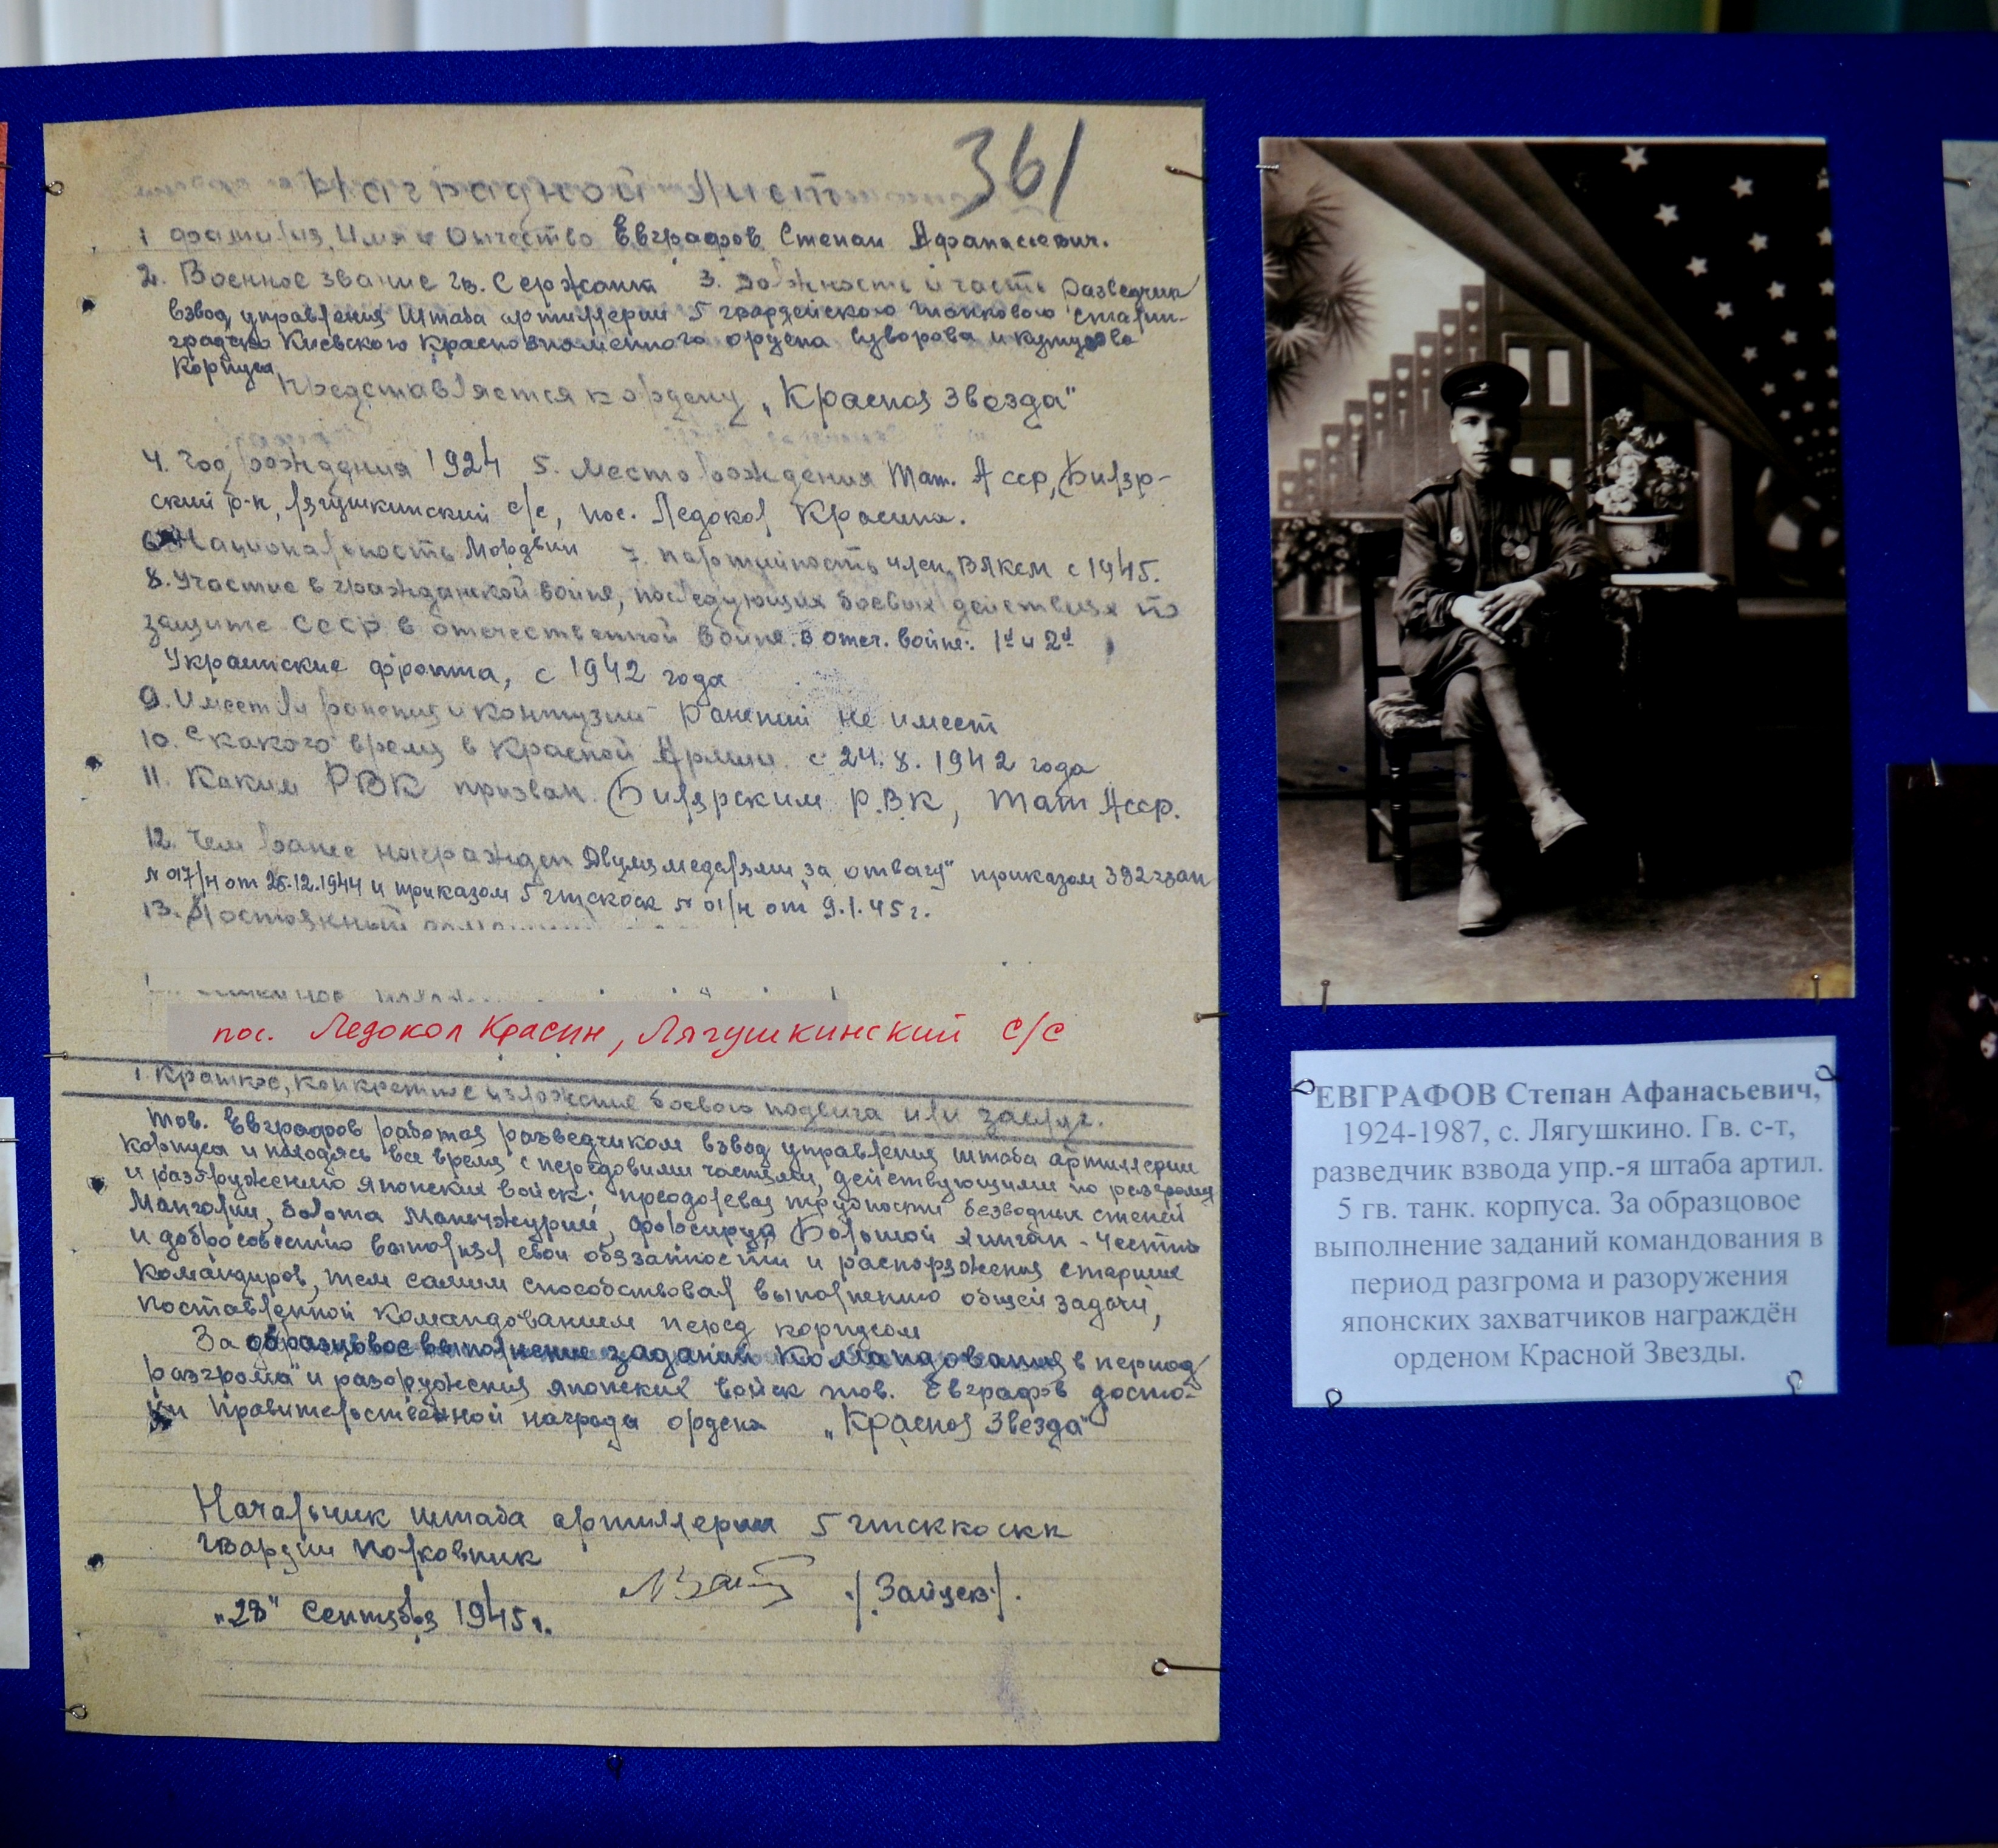 361
Наградной Лист
1 фамилия, Имя и Отчество Евграфов Степан Афанасьевич.
2. Военное звание гв. Сержант 3. Должность и часть разведчик
взвод управления Штаба артиллерии 5 гвардейского танкового Сталин-
градско Киевского Краснознаменного ордена Суворова и Кутузова
корпуса
Представляется к ордену „Красная Звезда"
4. Год рождения 1924 5. Место рождения Тат. Асср, Биляр-
ский р-н, Лягушкинский с/с, пос. Ледокол Красина.
6. Национальность Мордвин 7. партийность член ВЛКСМ с 1945.
8. Участие в гражданской войне, последующих боевых действиях по
защите СССР в отечественной войне. В отеч. войне: 1й и 2й
Украинские фронта, с 1942 года
9. Имеет ли ранения и контузии ранений не имеет
10. С какого время в Красной Армии с 24.8.1942 года
11. Каким РВК призван Билярским Р.В.К, Тат Асср.
12. Чем ранее награжден Двумя медалями „за отвагу" приказом 392 гзап
№ 017/н от 25.12.1944 и приказом 5 гтскоск № 01/н от 9.1.45 г.
13. Постоянный
пос. Ледокол Красин, Лягушкинский с/с
1. Краткое, конкретное изложение боевого подвига или заслуг.
Тов. Евграфов работая разведчиком взвод управления штаба артиллерии
корпуса и находясь все время с передовыми частями, действующими по разгрому
и разоружению японских войск; преодолевая трудности безводных степей
Манголии, болота Маньчжурии, форсируя Большой Хинган - честно
и добросовестно выполнял свои обязанности и распоряжения старших
командиров, тем самым способствовал выполнению общей задачи,
поставленной командованием перед корпусом
За образцовое выполнение заданий командования в период
разгрома и разоружения японских войск тов. Евграфов досто-
ин Правительственной награды ордена „Красная Звезда"
Начальник штаба артиллерии 5 гтсккоскк
гвардии полковник
/Зайцев/.
„28" Сентября 1945 г.
ЕВГРАФОВ Степан Афанасьевич,
1924-1987, с. Лягушкино. Гв. с-т,
разведчик взвода упр.-я штаба артил.
5 гв. танк. корпуса. За образцовое
выполнение заданий командования в
период разгрома и разоружения
японских захватчиков награждён
орденом Красной Звезды.